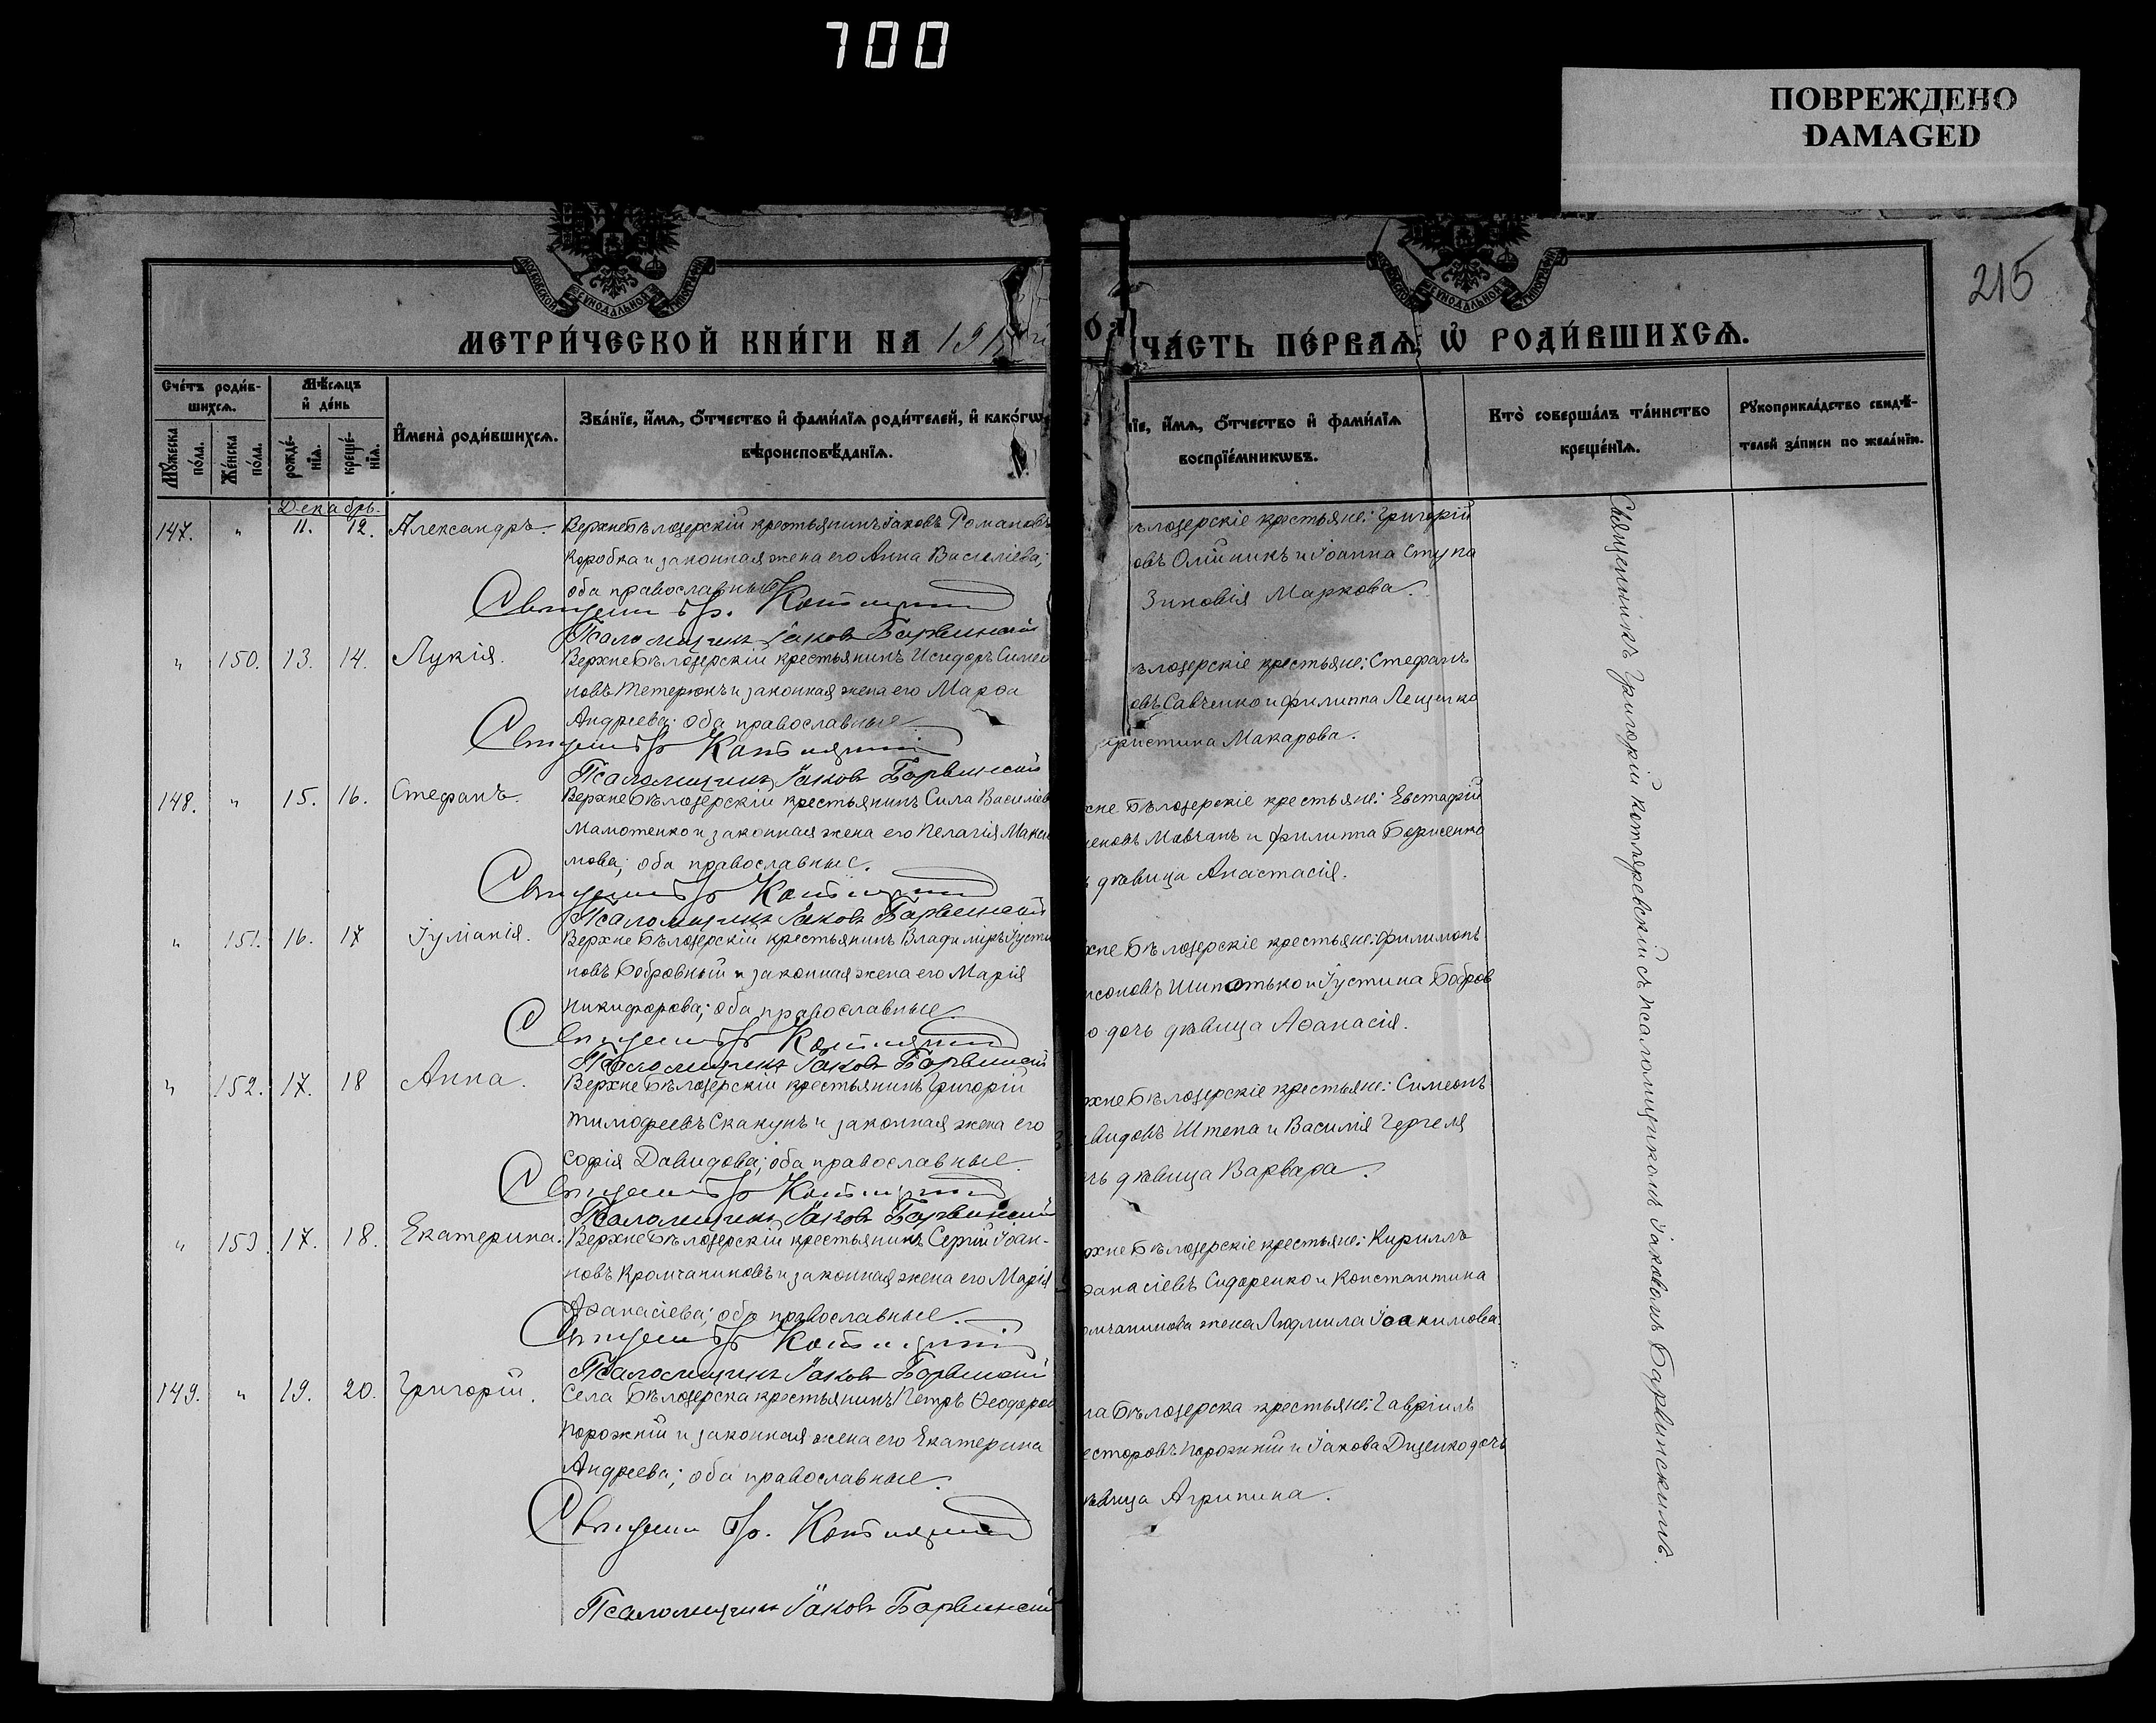 700
ПОВРЕЖДЕНО
DAMAGED
215
МОСКОВСКОЙ СѴНОДАЛЬНОЙ ТИПОГРАФІИ
МОСКОВСКОЙ СѴНОДАЛЬНОЙ ТИПОГРАФІИ
МЕТРИ́ЧЕСКОЙ КНИ́ГИ НА 191
ЧА́СТЬ ПЕ́РВАѦ, Ѡ҆ РОДИ́ВШИХСѦ.
Сче́тъ роди́в-
шихсѧ.
Мѣ́сѧцъ
и҆ де́нь
Мꙋ́жеска по́ла.
Же́нска по́ла.
рожде́-
нїѧ.
креще́-
нїѧ.
И҆мена̀ роди́вшихсѧ.
Зва́нїе, и҆́мѧ, ѻ҆́тчество и҆ фами́лїѧ роди́телей, и҆ како́гѡ
вѣроисповѣ́данїѧ.
нїе, и҆́мѧ, ѻ҆́тчество и҆ фами́лїѧ
воспрїе́мникѡвъ.
Кто̀ соверша́лъ та́инство
креще́нїѧ.
Рꙋкоприкла́дство свидѣ́-
телей за́писи по жела́нїю.
Декабрь.
147. " 11. 12. Александръ. Верхнебѣлозерскій крестьянинъ Іаковъ Романовъ
Коробка и законная жена его Анна Василіева;
оба православные
Священ. Гр. Котляревскій
Псаломщикъ Іаковъ Барвинскій
ѣлозерскіе крестьяне: Григорій
овъ Олійникъ и Іоанна Ступа
Зиновія Маркова.
" 150. 13. 14. Лукія. Верхнебѣлозерскій крестьянинъ Исидоръ Симео
новъ Тетерюкъ и законная жена его Марѳа
Андреева; оба православные
Священ. Гр. Котляревскій
Псаломщикъ Іаковъ Барвинскій
ѣлозерскіе крестьяне: Стефанъ
овъ Савченко и Филиппа Лещенко
Христина Макарова.
148. " 15. 16. Стефанъ. ВерхнеБѣлозерскій крестьянинъ Сила Василіев
Мамотенко и законная жена его Пелагія Макси
мова; оба православные.
Священ. Гр. Котляревскій
Псаломщикъ Іаковъ Барвинскій
хне Бѣлозерскіе крестьяне: Евстафій
еновъ Мовчанъ и Филиппа Борисенко
ь дѣвица Анастасія.
" 151. 16. 17 Іуліанія. Верхне Бѣлозерскій крестьянинъ Владиміръ Іусти
новъ Бобровный и законная жена его Марія
Никифорова; оба православные.
Священ. Гр. Котляревскій
Псаломщикъ Іаковъ Барвинскій
хне Бѣлозерскіе крестьяне: Филимонъ
соновъ Шипотько и Іустина Бобров
о дочь дѣвица Аѳанасія.
" 152. 17. 18 Анна. Верхне Бѣлозерскій крестьянинъ Григорій
Тимофеевъ Скакунъ и законная жена его
Софія Давидова; оба православные.
Священ. Гр. Котляревскій
Псаломщикъ Іаковъ Барвинскій
рхне Бѣлозерскіе крестьяне: Симеонъ
видовъ Штепа и Василія Гергеля
чь дѣвица Варвара.
" 153. 17. 18. Екатерина. Верхне Бѣлозерскій крестьянинъ Сергій Іоан-
новъ Кромчаниновъ и законная жена его Марія
Аѳанасіева; оба православные.
Священ. Гр. Котляревскій
Псаломщикъ Іаковъ Барвинскій
рхне Бѣлозерскіе крестьяне: Кириллъ
ѳанасіевъ Сидоренко и Константина
омчанинова жена Людмила Іоакимова.
149. " 19. 20. Григорій. Села Бѣлозерска крестьянинъ Петръ Ѳеодоров
Порожній и законная жена его Екатерина
Андреева; оба православные.
Священ. Гр. Котляревскій
Псаломщикъ Іаковъ Барвинскій
ла Бѣлозерска крестьяне: Гавріилъ
есторовъ Порожній и Іакова Диденко дочь
ѣвица Агрипина.
Священникъ Григорій Котляревскій съ псаломщикомъ Іаковомъ Барвинскимъ.